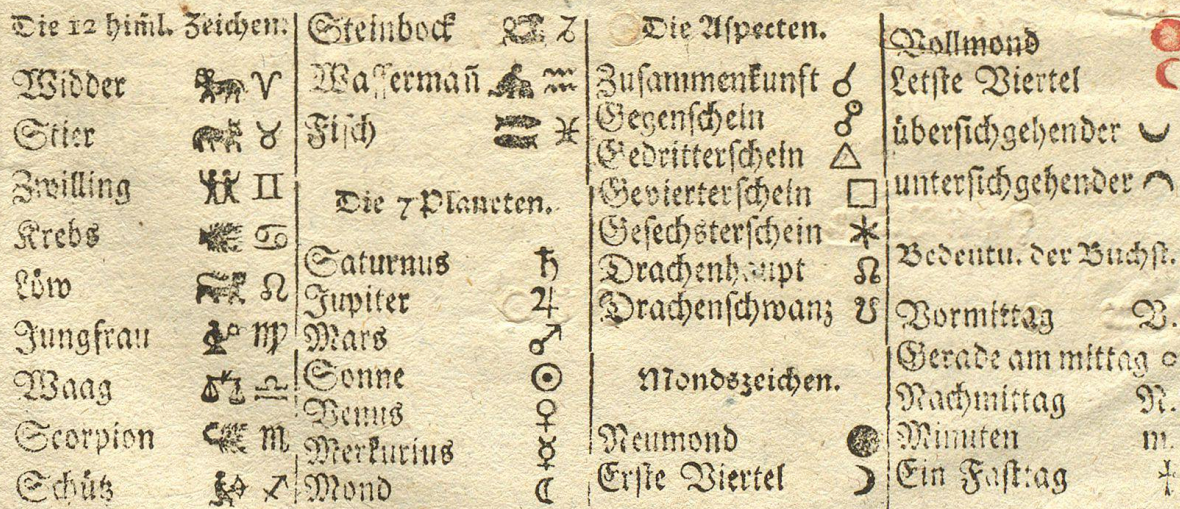 Die 12 him̃l. Zeichen:
Widder ♈
Stier ♉
Zwilling ♊
Krebs ♋
Löw ♌
Jungfrau ♍
Waag ♎
Scorpion ♏
Schütz ♐
Steinbock ♑
Wassermañ ♒
Fisch ♓
Die 7 Planeten.
Saturnus ♄
Jupiter ♃
Mars ♂
Sonne ☉
Venus ♀
Merkurius ☿
Mond ☾
Die Aspecten.
Zusammenkunft ☌
Gegenschein ☍
Gedritterschein △
Gevierterschein □
Gesechsterschein ⚹
Drachenhaupt ☊
Drachenschwanz ☋
Mondszeichen.
Neumond
Erste Viertel ☽
Vollmond
Letste Viertel ☾
übersichgehender
untersichgehender
Bedeutu. der Buchst.
Vormittag V.
Gerade am mittag o
Nachmittag N.
Minuten m.
Ein Fasttag